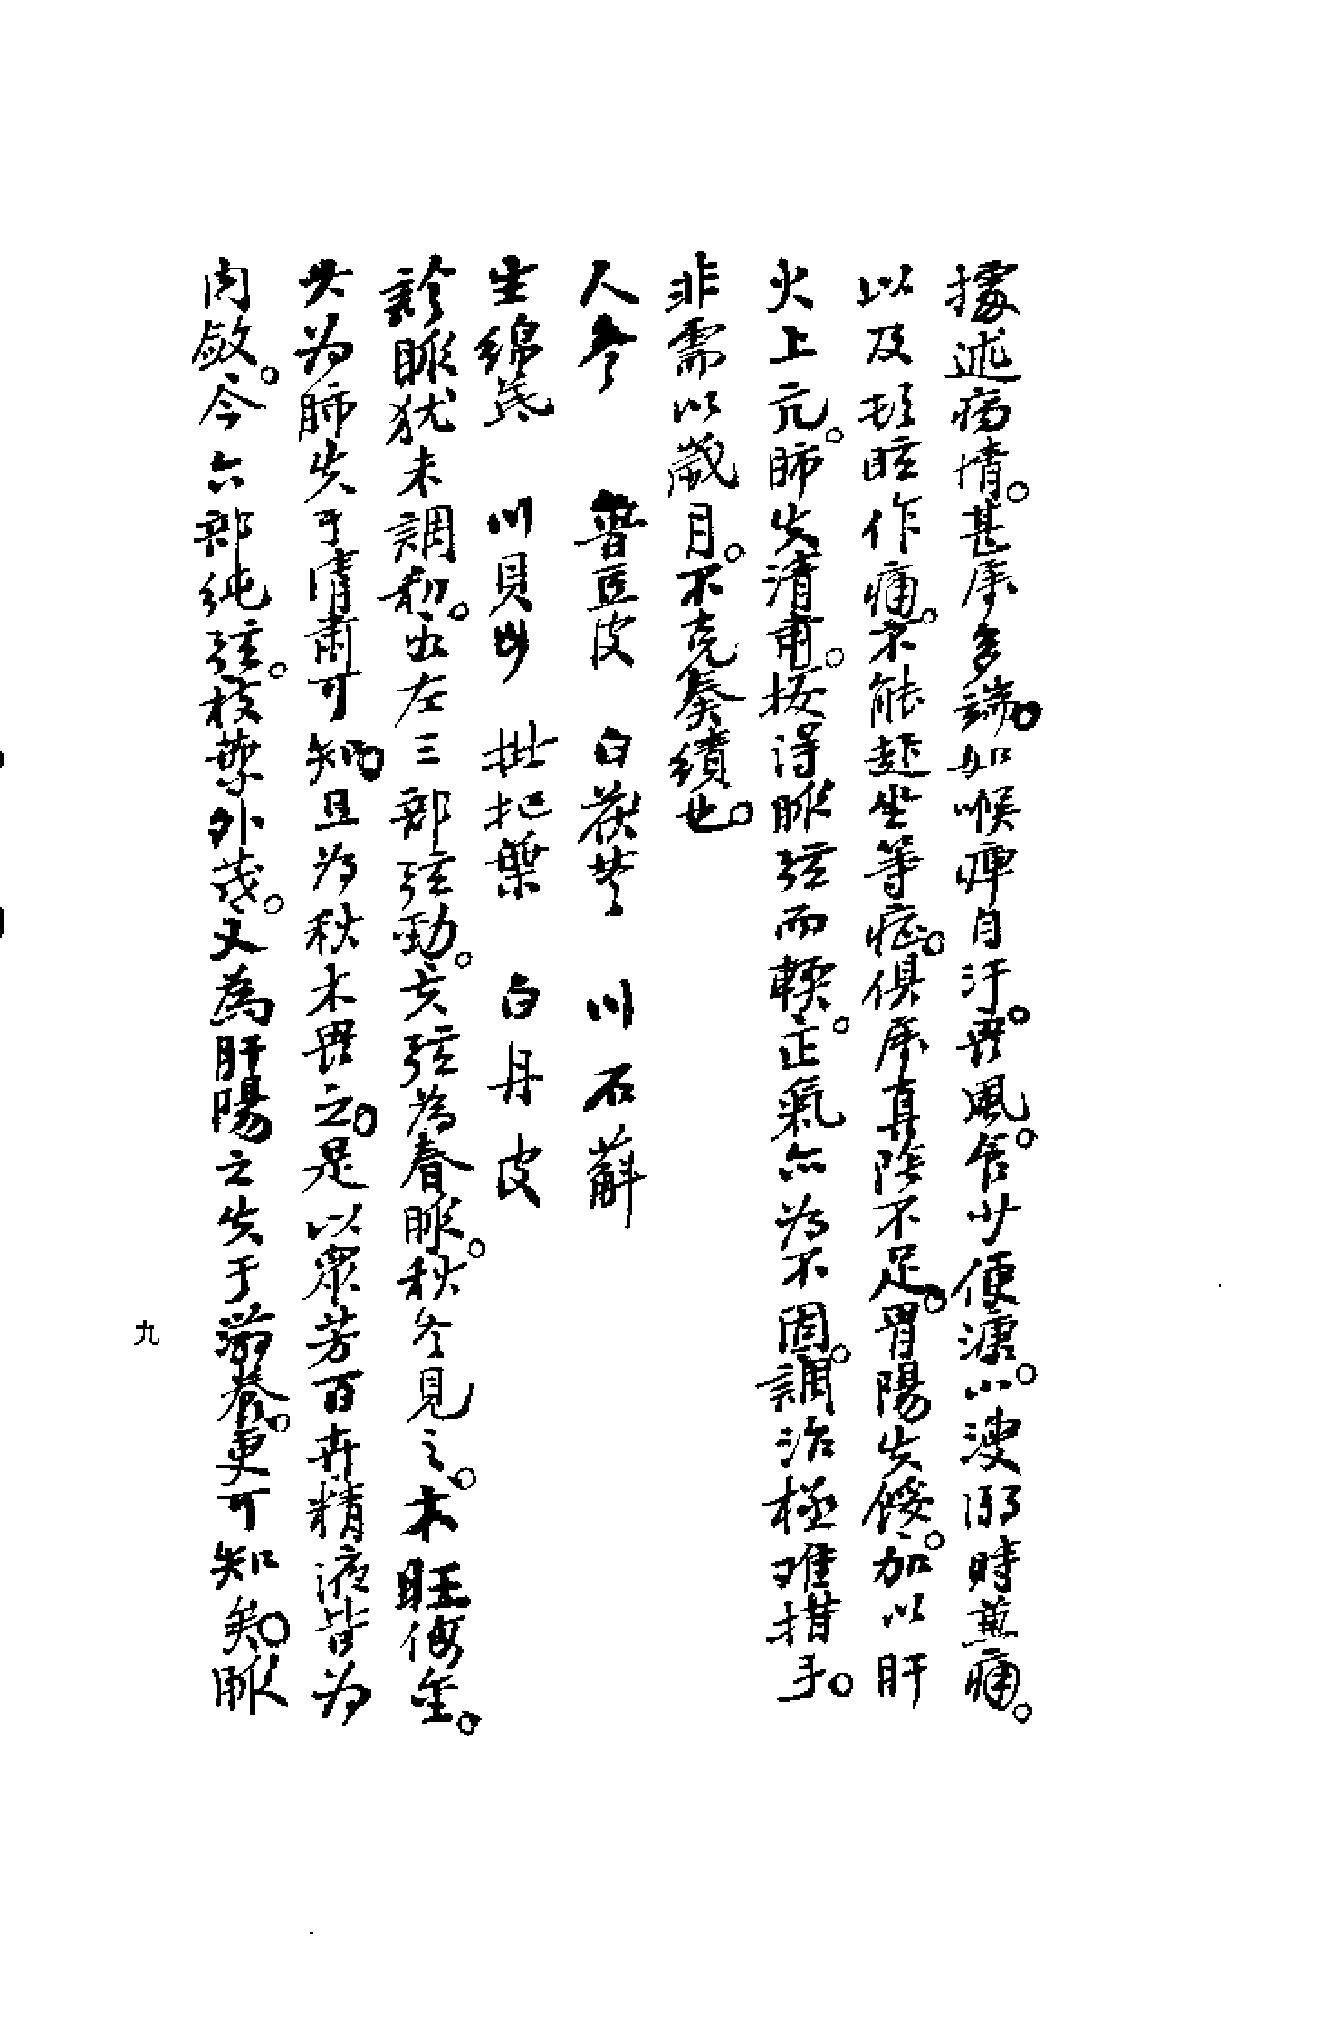 據述病情。甚屬多端。如喉痺自汗。畏風。食少便溏。小溲溺時煎痛。
以及頭眩作痛。不能起坐等症。俱屬真陰不足。胃陽失餒。加以肝
火上亢。肺失清肅。按得脈弦而軟。正氣亦為不固。調治極难措手。
非需以歲月。不克奏績也。
人參 普豆皮 白茯苓 川石斛
生綿茋 川貝母 枇杷葉 白丹皮
診脈犹未調和。左三部弦勁。夫弦為春脈。秋冬見之。木旺侮金。
其为肺失于清肅可知。且为秋木畏之。是以眾芳百卉精液皆为
内斂。今六部純弦。枝葉外茂。又為肝陽之失于滋養。更可知矣。脈
九